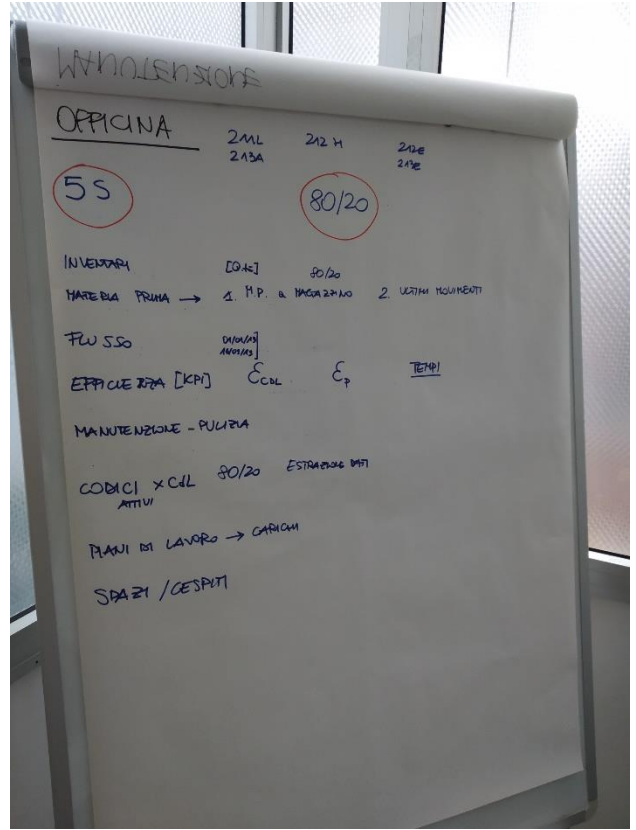 MANUTENZIONE
OFFICINA 211L 212H 212E
213A 213E
5S 80/20
INVENTARI [Q.tà] 80/20
MATERIA PRIMA → 1. M.P. a MAGAZZINO 2. ULTIMI MOVIMENTI
FLUSSO
EFFICIENZA [KPI] ƐCDL Ɛp TEMPI
MANUTENZIONE - PULIZIA
CODICI x CdL 80/20 ESTRAZIONE DATI
ATTIVI
PIANI DI LAVORO → CARICHI
SPAZI / CESPITI